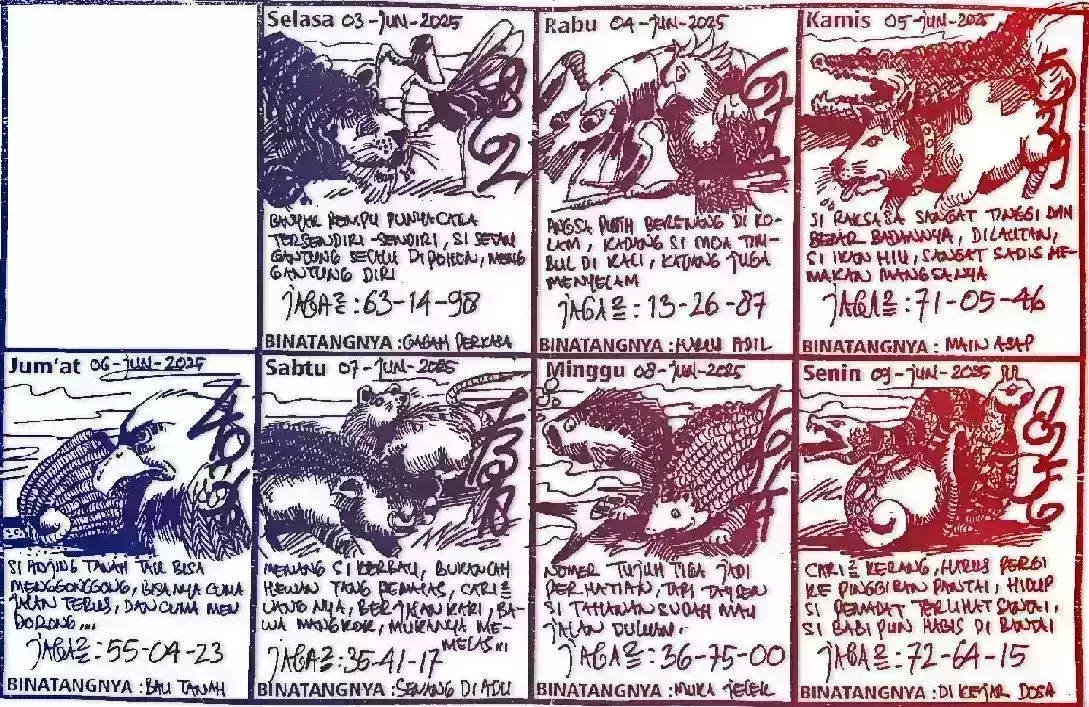 Selasa 03-JUN-2025
982
BANYAK DEMPU PUNYA CARA
TERSENDIRI-SENDIRI, SI SETAN
GANTUNG SELALU DI POHON, MENG
GANTUNG DIRI
JAGA2 : 63-14-98
BINATANGNYA : GAGAH PERKASA
Rabu 04-JUN-2025
ANGSA PUTIH BERENANG DI KO-
LAM, KADANG SI TIM-
BUL DI KALI, KADANG JUGA
MENYELAM
JAGA2 : 13-26-87
BINATANGNYA : HARUS ADIL
Kamis 05-JUN-2025
SI RAKSASA SANGAT TINGGI DAN
BESAR BADANNYA, DILAUTAN,
SI IKAN HIU, SANGAT SADIS ME-
MAKAN MANGSANYA
JAGA2 : 71-05-46
BINATANGNYA : MAIN ASAP
Jum'at 06-JUN-2025
SI ANJING TANAH TAK BISA
MENGGONGGONG, BISANYA CUMA
JALAN TERUS, DAN CUMA MEN
DORONG...
JAGA2 : 55-04-23
BINATANGNYA : BAU TANAH
Sabtu 07-JUN-2025
MENANG SI KERBAU, BUKANLAH
HEWAN YANG PEMALAS, CARI2
UANG NYA, BERJALAN KAKI, BA-
WA MANGKOK, MUKANYA ME-
MELAS...
JAGA2 : 35-41-17
BINATANGNYA : SENANG DI ADU
Minggu 08-JUN-2025
NOMER TUJUH TIGA JADI
PERHATIAN, TAPI
SI TAHANAN SUDAH MAU
JALAN DULUAN.
JAGA2 : 36-75-00
BINATANGNYA : MUKA JELEK
Senin 09-JUN-2025
CARI2 KERANG, HARUS PERGI
KE PINGGIRAN PANTAI, HIDUP
SI PEMADAT TERLIHAT SANTAI,
SI BABI PUN HABIS DI BANTAI
JAGA2 : 72-64-15
BINATANGNYA : DI KEJAR DOSA